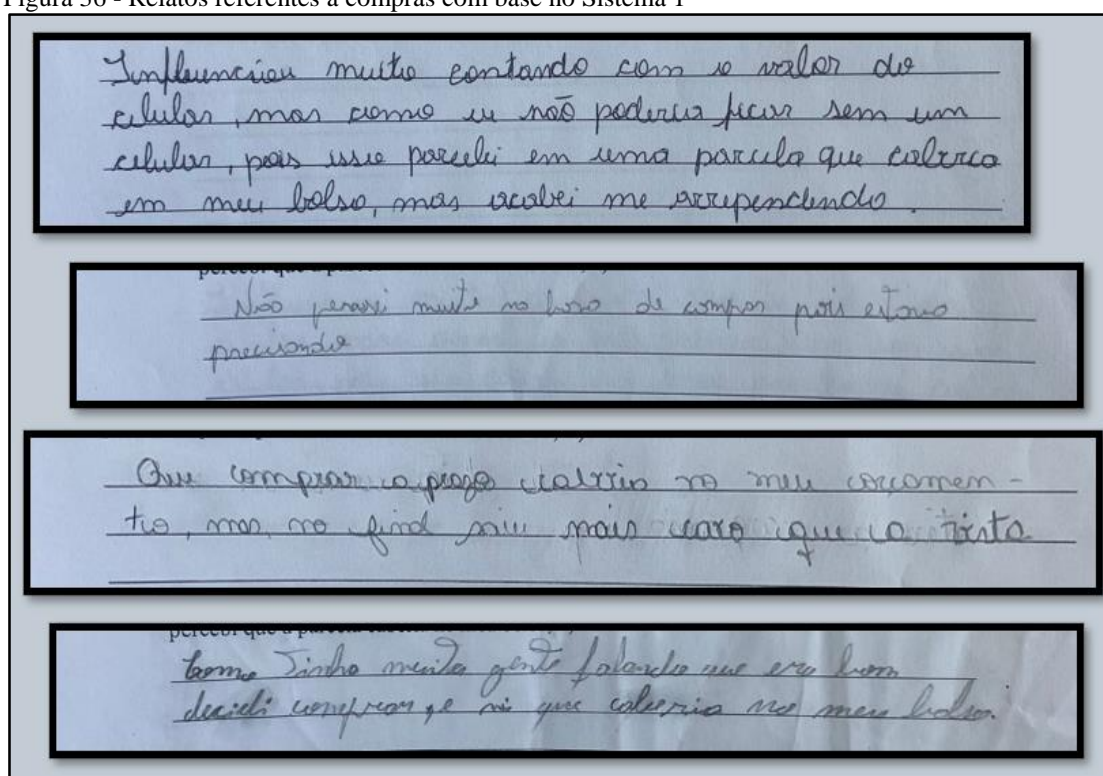 Figura 36 - Relatos referentes a compras com base no Sistema 1
Influenciou muito contando com o valor do
celular, mas como eu não poderia ficar sem um
celular, pois isso parcelei em uma parcela que caberia
em meu bolso, mas acabei me arrependendo.
Não pensei muito na hora de compra pois estava
precisando
Que comprar a prazo caberia no meu orçamen-
to, mas no final saiu mais caro que a vista
percebi que a parcela
como Tinha muita gente falando que era bom
decidi comprar, e vi que caberia no meu bolso.